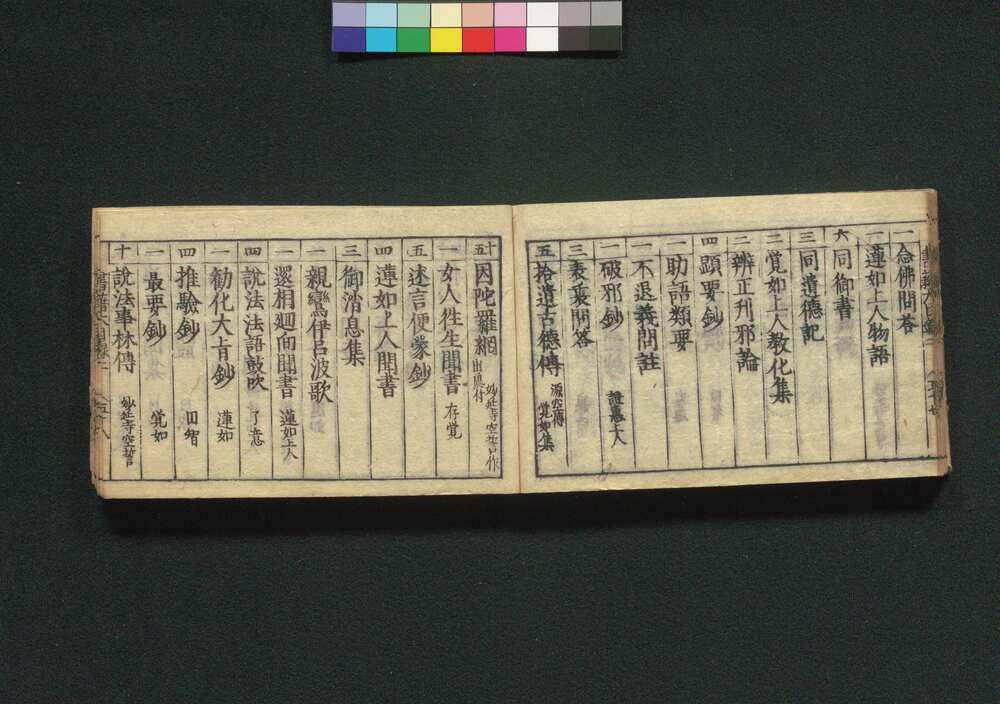 一 念佛問答
一 蓮如上人物語
六 同御書
三 同遺德記
二 覚如上人教化集
二 辨正刊邪論
四 顕要鈔
一 助語類要
一 不退義問註
一 破邪鈔 證惠上人
三 表裏問答
五 拾遺古德傳 源空傳 覚如集
十五 因陀羅網 出離付 妙延寺空誓作
一 女人徃生聞書 存覚
五 述言便蒙鈔
四 蓮如上人聞書
三 御消息集
一 親鸞伊呂波歌
二 還相廻向聞書 蓮如上人
四 說法法語鼓吹 了意
一 勧化大旨鈔 蓮如
四 推驗鈔 旧智
一 最要鈔 覚如
十 說法事林傳 妙延寺空誓